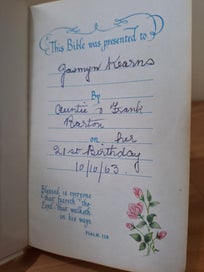 This Bible was presented to
Jasmyn Hearns
By
Auntie & Frank
Barton
on her
21st Birthday
10/10/63
Blessed is everyone
that feareth the
Lord That walketh
in his ways.
PSALM. 128